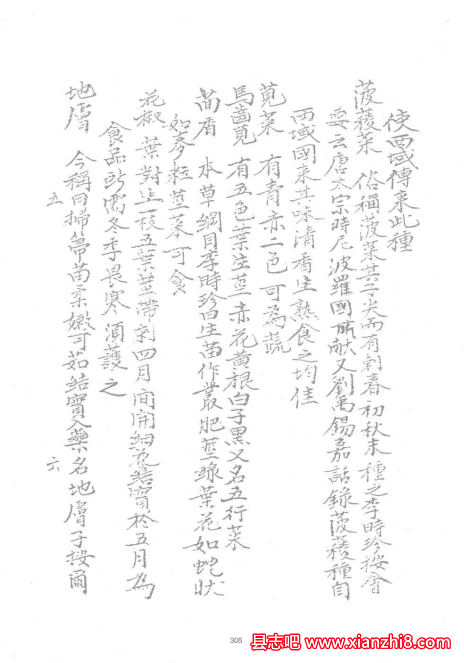 使西域傳來此種
菠薐菜 俗稱菠菜其子尖而有刺春初秋末種之李時珍按會
要云唐太宗時尼波羅國所献又劉禹錫嘉話錄菠薐種自
西域國來其味清香生熟食之均佳
莧菜 有青赤二色可為蔬
馬齒莧 有五色葉生莖赤花黃根白子黑又名五行菜
茴香 本草綱目李時珍曰生苗作叢肥莖綠葉花如蛇狀
如麥粒莖葉可食
花椒 葉對生一枝五葉莖帶刺四月間開細花結實於五月為
食品所需冬季畏寒須護之
地膚 今稱曰掃帚苗柔嫩可茹結實入藥名地膚子按爾
五 六
305
县志吧@www.xianzhi8.com
县志吧@www.xianzhi8.com